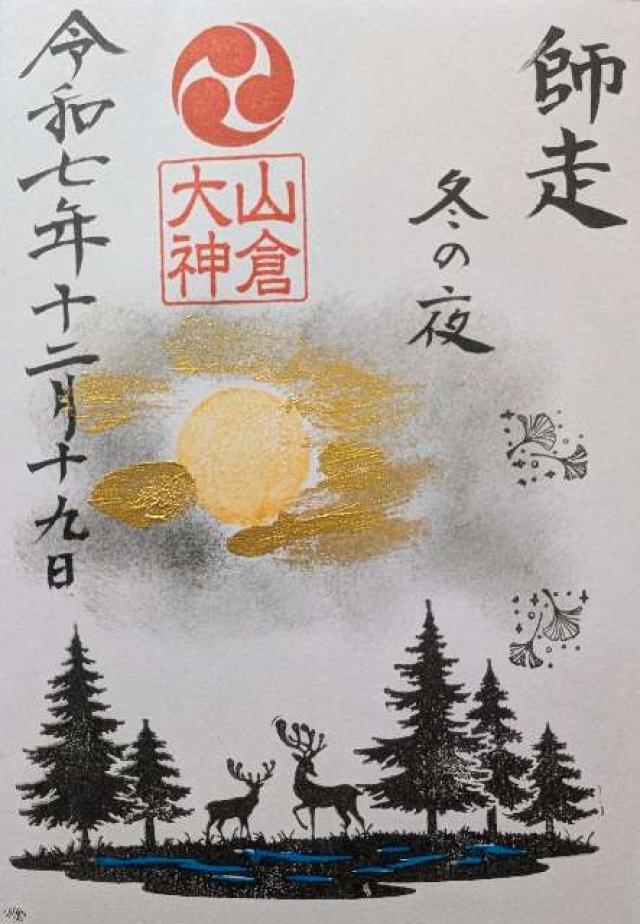 師走
冬の夜
山倉
大神
令和七年十二月十九日